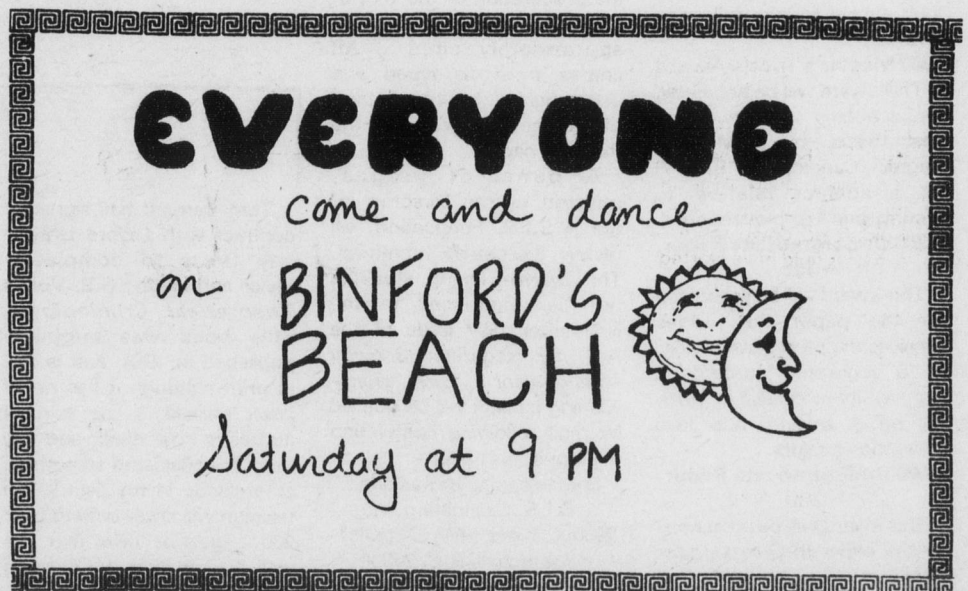 EVERYONE
come and dance
on BINFORD'S
BEACH
Saturday at 9 PM